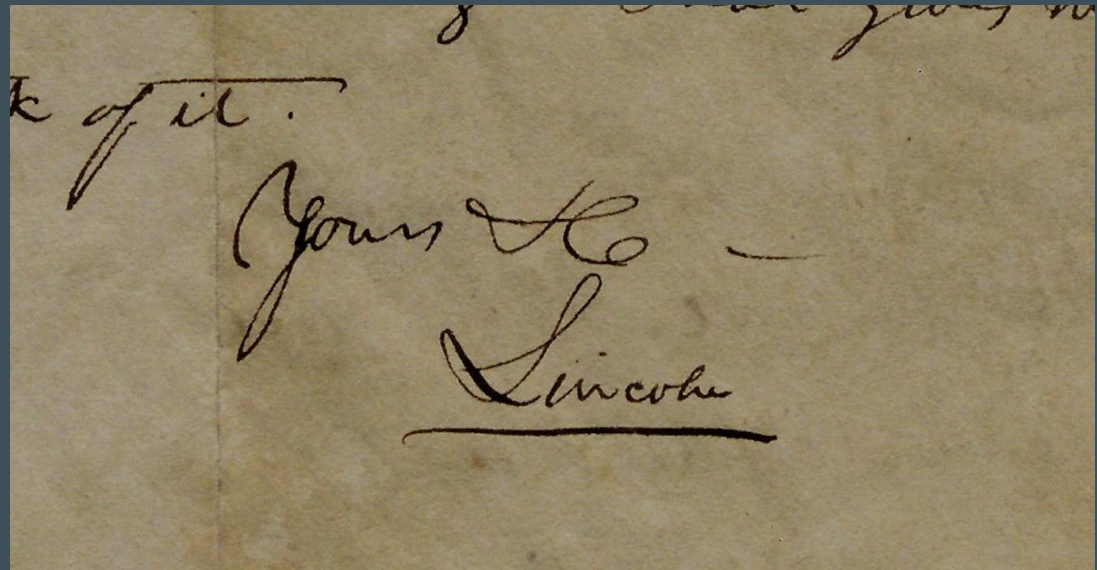 k of it.
Yours &c —
Lincoln